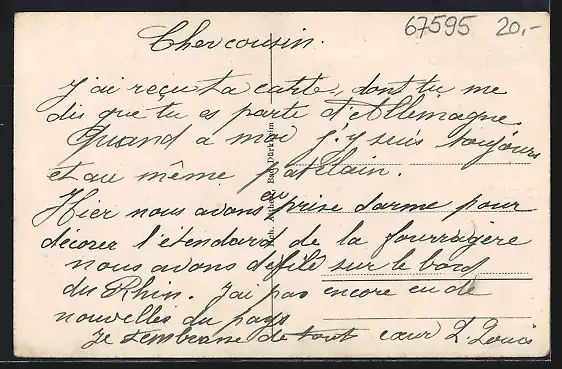 67595 20,-
Cher cousin.
J'ai reçu ta carte, dont tu me
dis que tu es parte d'Allemagne.
Quand a moi j'y suis toujours
et au même patelain.
Hier nous avons eu prise darme pour
décorer l'étendard de la fourragère
nous avons defilé sur le bord
du Rhin. J'ai pas encore eu de
nouvelles du pays
Je t'embrasse de tout cœur L. Louis
Bad Dürkheim